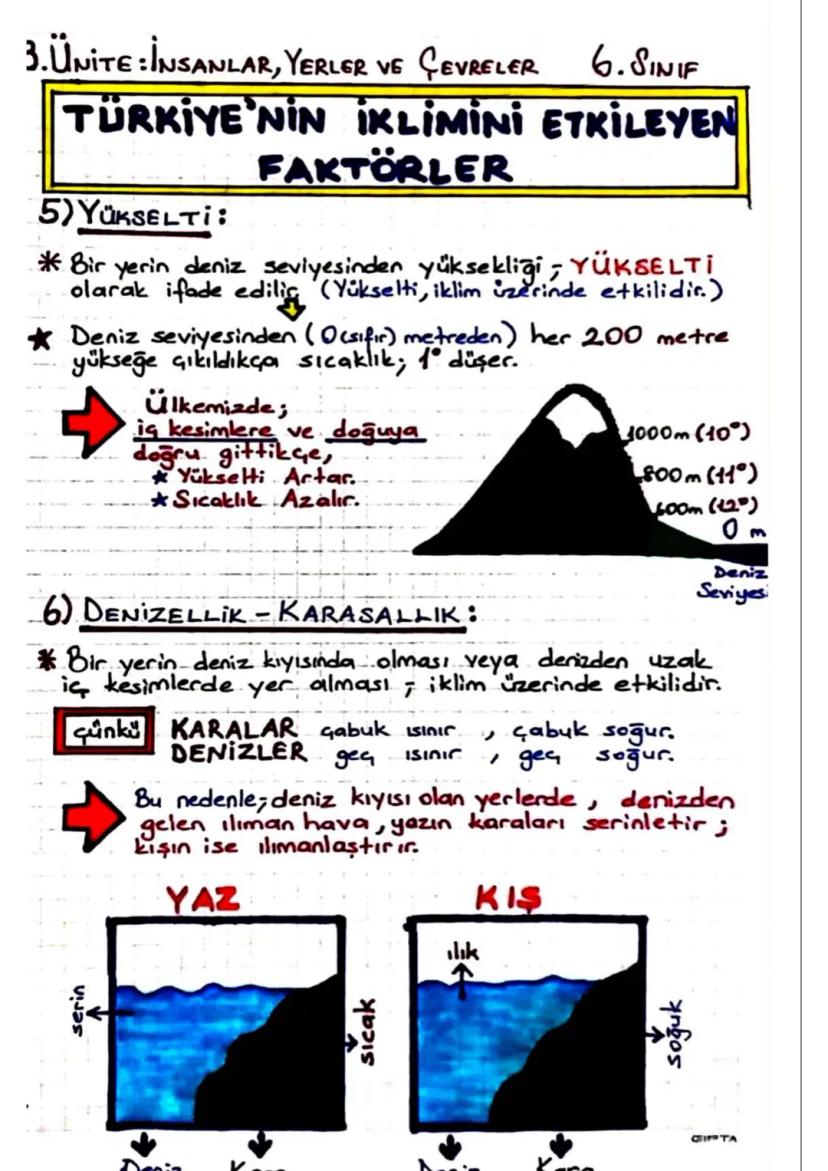 3.ÜNİTE: İNSANLAR, YERLER VE ÇEVRELER 6. SINIF
TÜRKİYE'NİN İKLİMİNİ ETKİLEYEN
FAKTÖRLER
5) YÜKSELTİ:
* Bir yerin deniz seviyesinden yüksekliği; YÜKSELTİ
olarak ifade edilir. (Yükselti, iklim üzerinde etkilidir.)
★ Deniz seviyesinden (0(sıfır) metreden) her 200 metre
yükseğe çıkıldıkça sıcaklık; 1° düşer.
Ülkemizde;
iç kesimlere ve doğuya
doğru gittikçe,
★ Yükselti Artar.
★ Sıcaklık Azalır.
1000m (10°)
800m (11°)
600m (12°)
0 m
Deniz
Seviyesi
6) DENİZELLİK - KARASALLIK:
* Bir yerin deniz kıyısında olması veya denizden uzak
iç kesimlerde yer alması; iklim üzerinde etkilidir.
çünkü KARALAR çabuk ısınır, çabuk soğur.
DENİZLER geç ısınır, geç soğur.
Bu nedenle; deniz kıyısı olan yerlerde, denizden
gelen ılıman hava, yazın karaları serinletir;
kışın ise ılımanlaştırır.
YAZ KIŞ
serin
sıcak
ılık
soğuk
Deniz Kara Deniz Kara